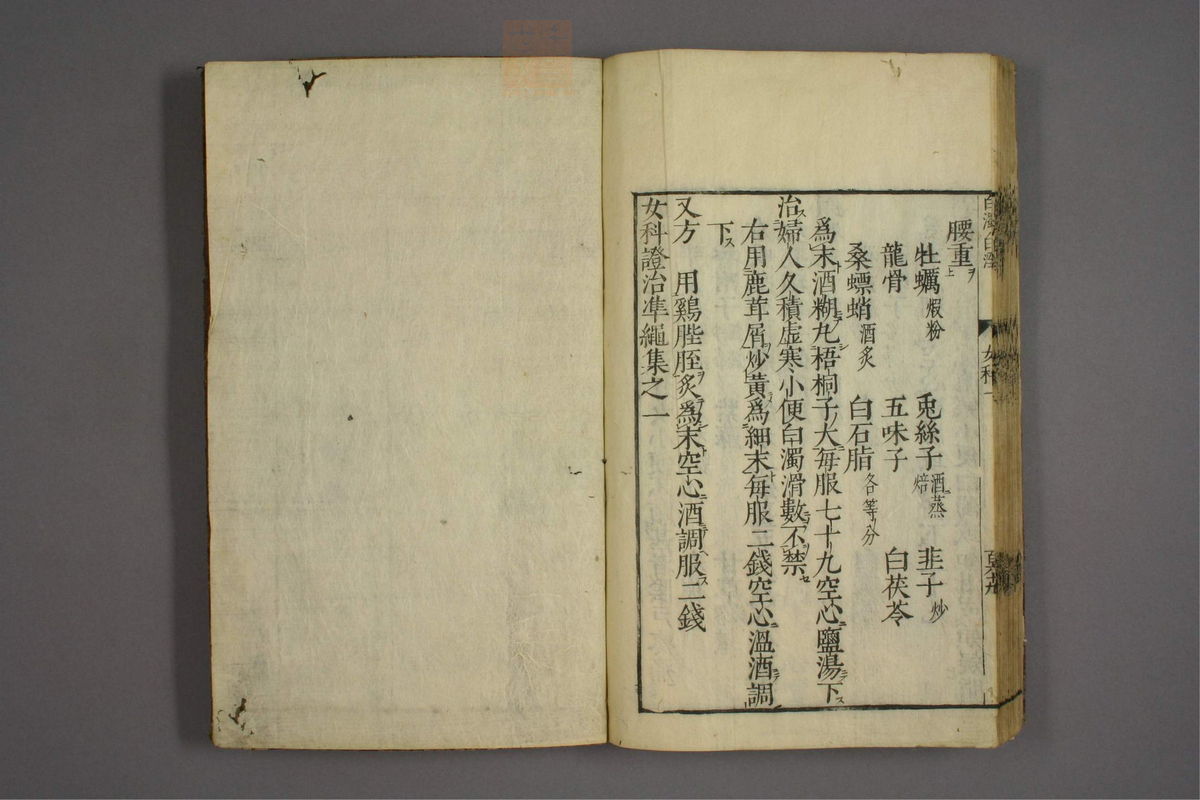 腰重ヲ
牡蠣煅粉 兎絲子酒蒸焙 韭子炒
龍骨 五味子 白茯苓
桑螵蛸酒炙 白石脂各等分
爲末酒糊丸梧桐子大每服七十九空心鹽湯下ス
治ス婦人久積虛寒小便白濁滑數不禁セ
右用鹿茸屑炒黃爲細末每服二錢空心溫酒調
下ス
又方 用鷄膍胵炙爲末空心酒調服二錢
女科證治準繩集之一
女科一